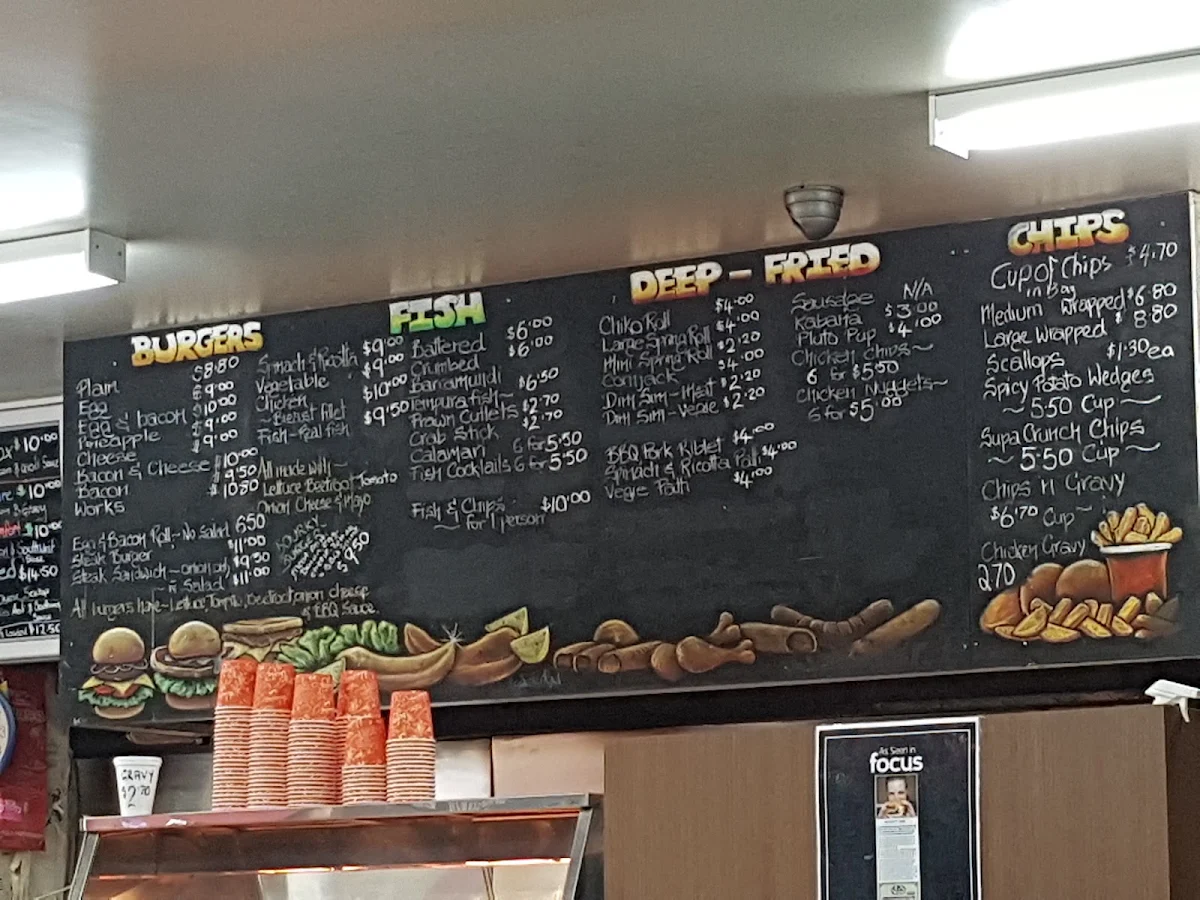 BURGERS
Plain $8.80
Egg $9.00
Egg & bacon $10.00
Pineapple $9.00
Cheese $9.00
Bacon & Cheese $10.00
Bacon $9.50
Works $10.80
Egg & Bacon Roll - No Salad 6.50
Steak Burger $11.00
Steak Sandwich - onion only $9.50
~ n Salad $11.00
All burgers have - Lettuce, Tomato, beetroot onion cheese
& BBQ Sauce
Spinach & Ricotta $9.00
Vegetable $9.00
Chicken $10.00
~ Breast fillet
Fish - Real fish $9.50
All made with ~
Lettuce Beetroot Tomato
Onion Cheese & Mayo
$9.50
FISH
Battered $6.00
Crumbed $6.00
Barramundi
Tempura fish ~ $6.50
Prawn Cutlets $2.70
Crab Stick $2.70
Calamari 6 for 5.50
Fish Cocktails 6 for 5.50
Fish & Chips $10.00
~ for 1 person
DEEP - FRIED
Chiko Roll $4.00
Large Spring Roll $4.00
Mini Spring Roll $2.20
Cornjack $4.00
Dim Sim - Meat $2.20
Dim Sim - Vegie $2.20
BBQ Pork Riblet $4.00
Spinach & Ricotta Roll $4.00
Vegie Path $4.00
Sausage N/A
Kabana $3.00
Pluto Pup $4.00
Chicken Chips ~
6 for $5.50
Chicken Nuggets ~
6 for $5.00
CHIPS
Cup of Chips $4.70
in Bag
Medium Wrapped $6.80
Large Wrapped $8.80
Scallops $1.30 ea
Spicy Potato Wedges
~ 5.50 Cup ~
Supa Crunch Chips
~ 5.50 Cup ~
Chips N Gravy
$6.70 Cup ~
Chicken Gravy
2.70
$10.00
$10.00
$10.00
$14.50
$12.50
GRAVY
$2.70
As Seen in
focus